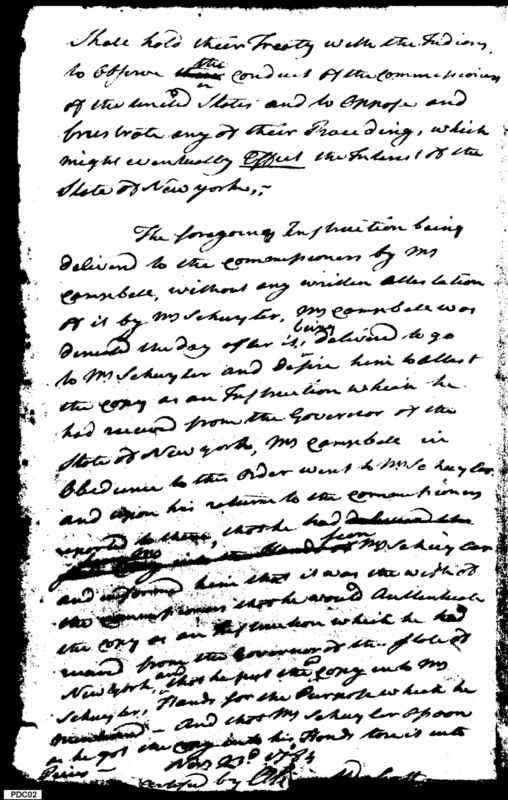 Shall hold their Treaty with the Indians,
to observe the conduct of the commissioners
of the united States and to oppose and
frustrate any of their Proceeding, which
might eventually Effect the Interest of the
State of New york,;
The foregoing Instruction being
delivered to the commissioners by Mr
Campbell, without any written attestation
of it by Mr Schuyler, Mr Campbell was
the day after it being delivered to go
to Mr Schuyler and desire him to attest
the copy as an Instruction which he
had received from the Governor of the
State of New york, Mr Campbell in
Obedience to this order went to Mr Schuyler
and upon his return to the commissioners
reported to them, that he had
seen Mr Schuyler
and informed him that it was the wish of
the commissioners that he would Authenticate
the copy as an Instruction which he had
received from the Governor of the State of
New york, and that he put the copy into Mr
Schuyler, Hands for the Purpose which he
mentioned — And that Mr Schuyler upon
as he got the copy into his Hands tore it into
Pieces —
by
PDC02